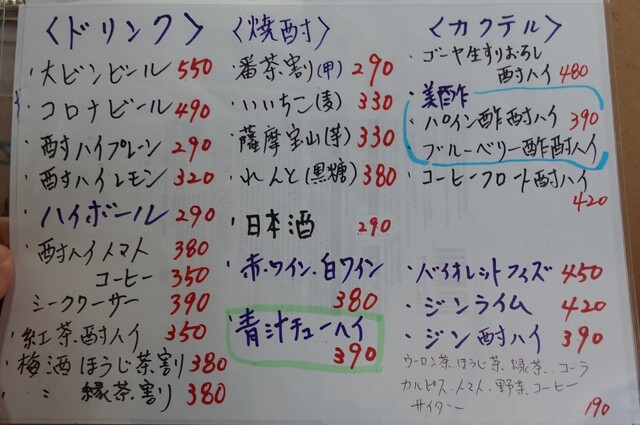 〈ドリンク〉
・大ビンビール 550
・コロナビール 490
・酎ハイプレーン 290
・酎ハイレモン 320
・ハイボール 290
・酎ハイトマト 380
コーヒー 350
シークワーサー 390
・紅茶.酎ハイ 350
・梅酒ほうじ茶割 380
・〃 緑茶.割り 380
〈焼酎〉
・番茶割り(甲) 290
・いいちこ(麦) 330
・薩摩宝山(芋) 330
・れんと(黒糖) 380
・日本酒 290
・赤.ワイン.白ワイン
380
・青汁チューハイ
390
〈カクテル〉
・ゴーヤ生すりおろし
酎ハイ 480
・美酢
・パイン酢酎ハイ 390
・ブルーベリー酢酎ハイ
・コーヒーフロート酎ハイ
420
・バイオレットフィズ 450
・ジンライム 420
・ジン酎ハイ 390
ウーロン茶.ほうじ茶.緑茶..コーラ
カルピス.トマト.野菜.コーヒー
サイダー 190